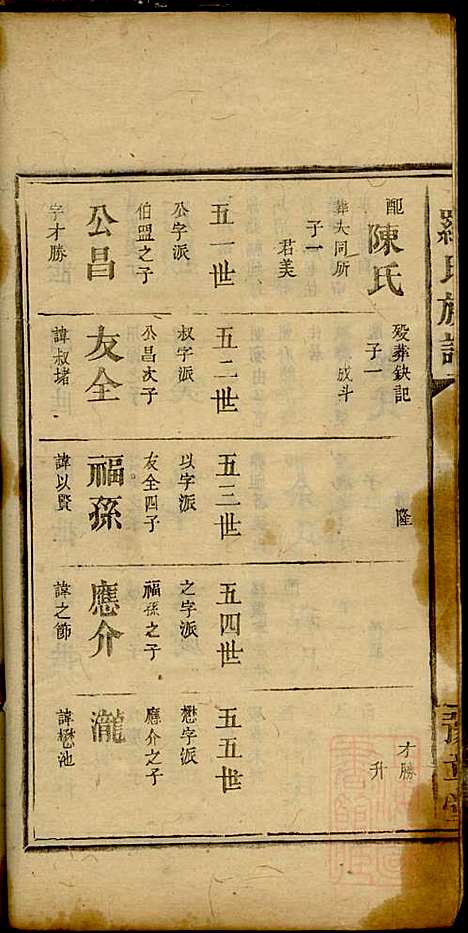 羅氏族譜
配陳氏
葬大同所
子一
君美
歿葬缺記
子一
成斗
隆
才勝
升
五一世
公字派
伯盟之子
公昌
字才勝
五二世
叔字派
公昌次子
友全
諱叔堵
五三世
以字派
友全四子
福孫
諱以賢
五四世
之字派
福孫之子
應介
諱之節
五五世
懋字派
應介之子
瀧
諱懋池
豫章堂